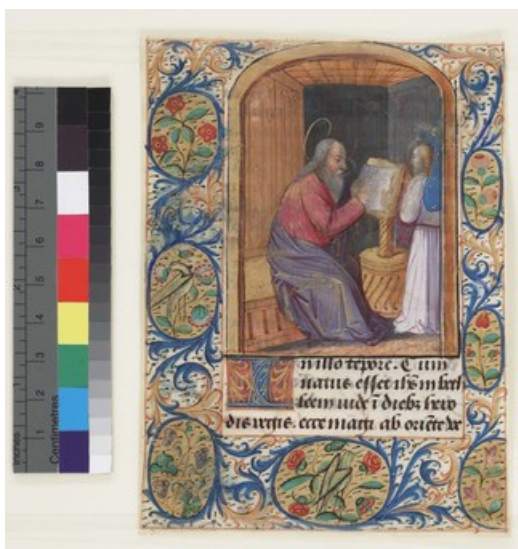 9
8
7
6
5
4
3
2
1
Centimetres
inches
In illo tēpore. Cum
natus esset ihs̄ in beth
leem iude ī diebꝫ hero
dis regis. ecce magi ab oriēte ve